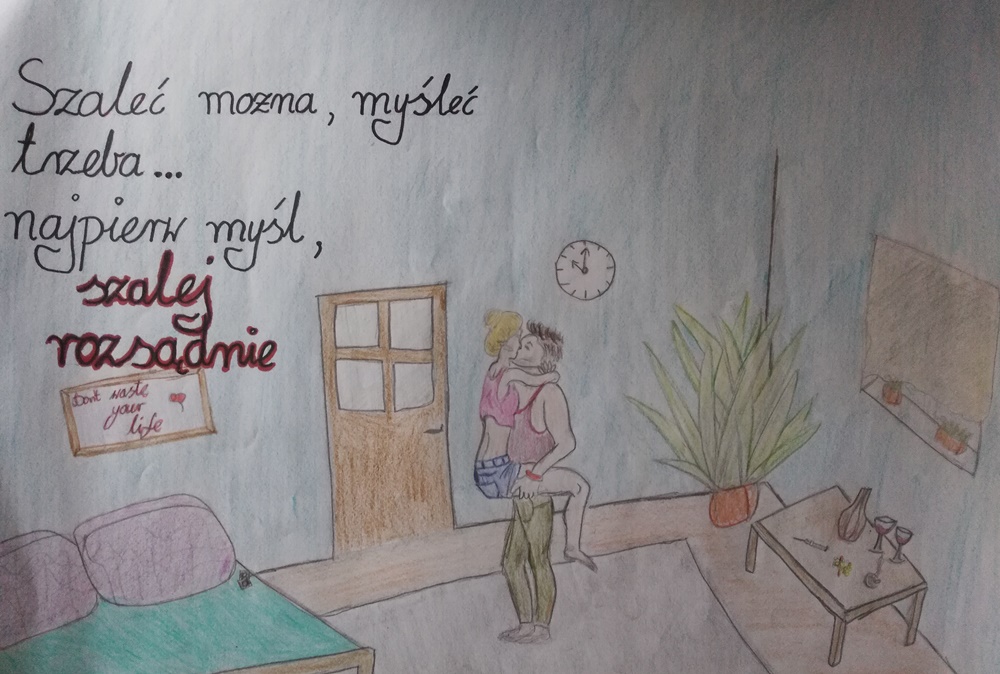 Szaleć można, myśleć
trzeba...
najpierw myśl,
szalej
rozsądnie
Don't waste
your
life